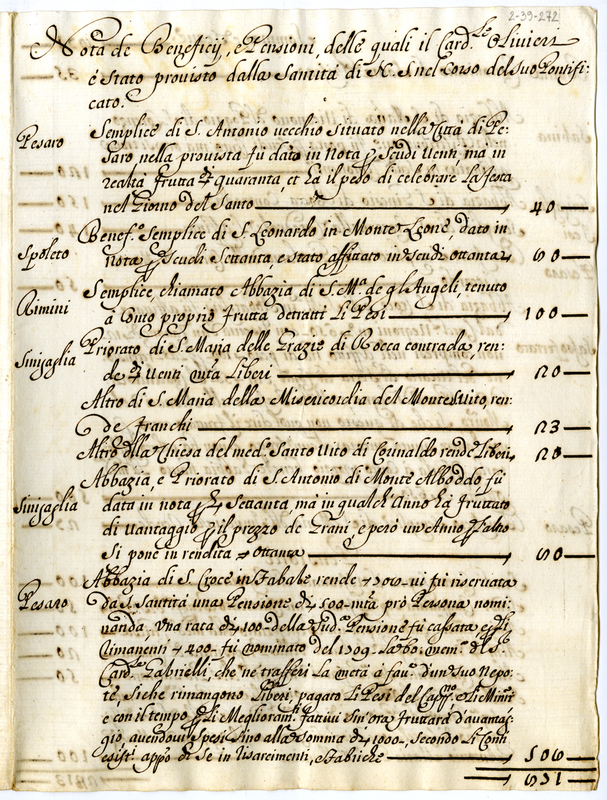 2-39-272
Nota de Beneficij, e Pensioni, delle quali il Card.le Olivieri
è stato provisto dalla Santità di N. S. nel corso del suo Pontifi:
cato.
Pesaro Semplice di S. Antonio vecchio situato nella Città di Pe:
saro, nella provista fù dato in nota p scudi venti, mà in
realtà frutta quaranta, et hà il peso di celebrare la festa
nel Giorno del Santo 40
Spoleto Benef.o Semplice di S. Leonardo in Monte Leone, dato in
nota p scudi settanta, e stato affittato in scudi ottanta 80
Rimini Semplice, chiamato Abbazia di S. M.a de gl'Angeli, tenuto
à conto proprio frutta detratti li Pesi 100
Sinigaglia Priorato di S. Maria delle Grazie di Rocca contrada, ren:
de venti m.ta liberi 20
Altro di S. Maria della Misericordia del Monte S. Vito, ren:
de franchi 23
Altro della Chiesa del med.o Santo Vito di Corinaldo rende liberi 28
Sinigaglia Abbazia, e Priorato di S. Antonio di Monte Alboddo fù
data in nota p settanta, mà in qualch'Anno hà fruttato
di vantaggio p il prezzo de Grani e però un Anno p l'altro
si pone in rendita ottanta 80
Pesaro Abbazia di S. Croce in rende vi fù riservata
da S. Santità una Pensione di 500 m.ta prò Persona nomi:
nanda, una rata di 100 della sud.a Pensione fù cassata e di
rimanenti 400 fù nominato del 1709 la bo: mem: del S.r
Card.le Gabrielli, che ne trasferì la metà à fau.e d'un suo Nepo:
te, siche rimangono liberi, pagato li Pesi del e li Minis.i
e con il tempo p li Meglioram.ti fattivi sin'ora fruttarà d'avantag:
gio, avendovi spesi sino alla somma di 1000, secondo li Conti
esist.i app.o di se in risarcimenti, e fabriche 506